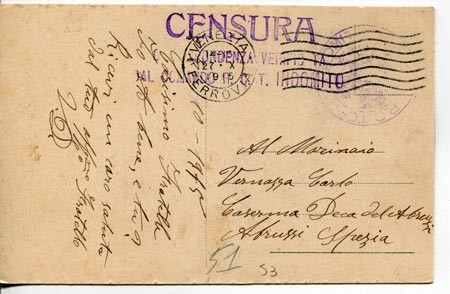 CENSURA
CORRISPONDENZA VERIFICATA
DAL COMANDO R. C. T. INDOMITO
VENEZIA
27 X
915
FERROVIA
10-1915
Carissimo Fratello
Io stò bene, e tu
Ricevi un caro saluto
dal tuo affmo Fratello
Al Marinaio
Vernazza Carlo
Caserma Duca del Abruzzi
Abrussi Spezia
51
53